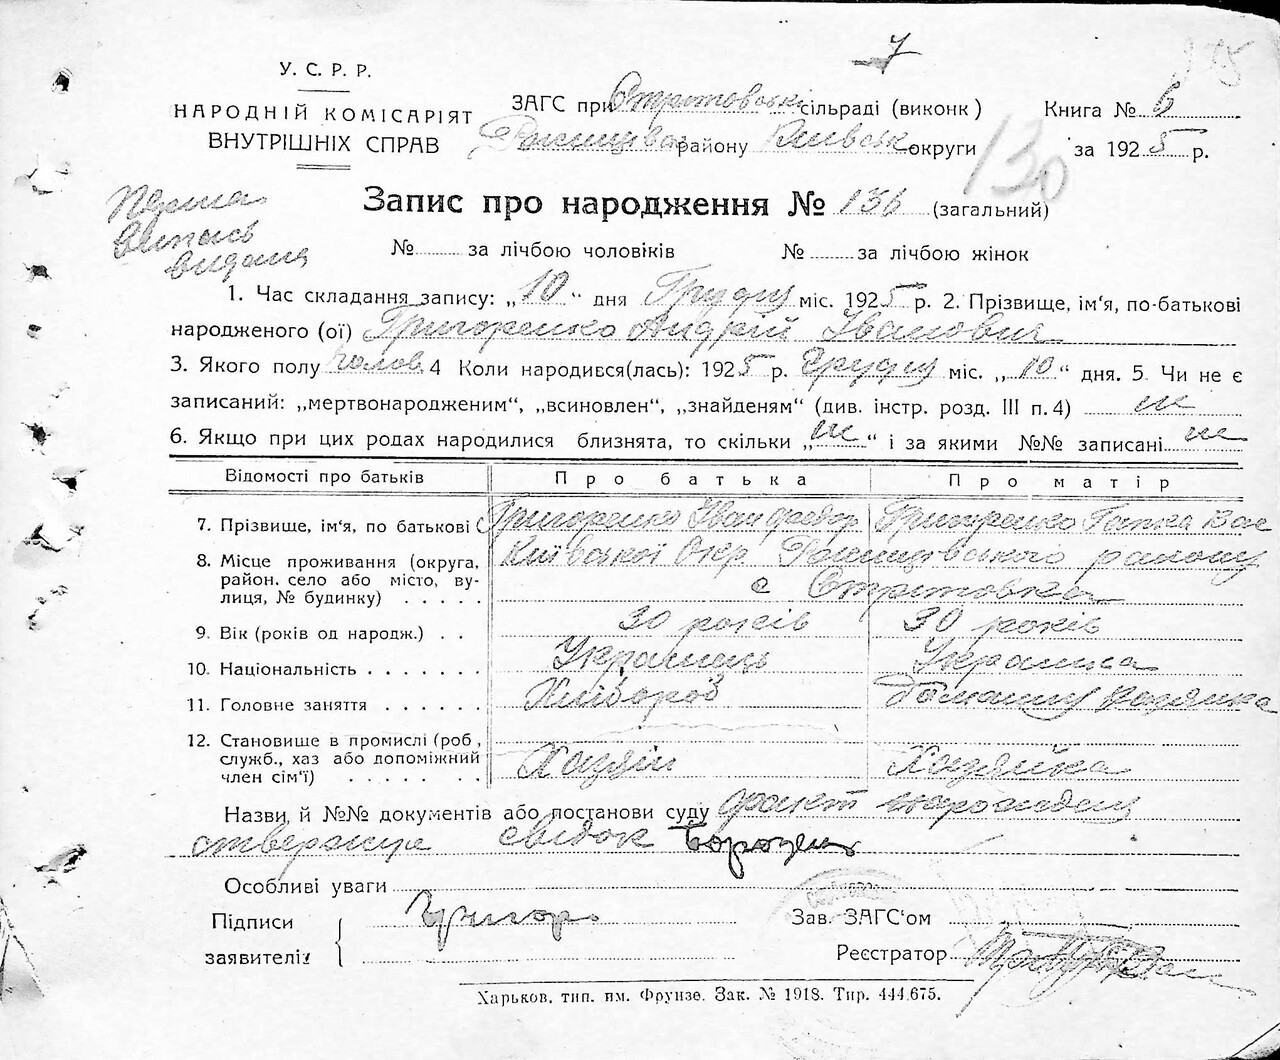 7
У. С. Р. Р.
НАРОДНІЙ КОМІСАРІЯТ
ВНУТРІШНІХ СПРАВ
ЗАГС при Стритовські сільраді (виконк)
району Київськ округи
Книга № 6
за 1925 р.
130
Перша
випись
видана
Запис про народження № 136 (загальний)
№ за лічбою чоловіків № за лічбою жінок
1. Час складання запису: „10“ дня Грудня міс. 1925 р. 2. Прізвище, ім‘я, по-батькові
народженого (ої) Григоренко Андрій Іванович
3. Якого полу Чолов. 4 Коли народився(лась): 1925 р. Грудня міс. „10“ дня. 5. Чи не є
записаний: „мертвонародженим“, „всиновлен“, „знайденям“ (див. інстр. розд. III п. 4) ні
6. Якщо при цих родах народилися близнята, то скільки „ні“ і за якими №№ записані ні
Відомості про батьків Про батька Про матір
7. Прізвище, ім‘я, по батькові Григоренко Іван Федор Григоренко Вас
8. Місце проживання (округа, Київської Окр. району
район. село або місто, ву- с Стритовка
лиця, № будинку) . . . . .
9. Вік (років од народж.) . . 30 років 30 років
10. Національність . . . . . . . Українець Українка
11. Головне заняття . . . . . . Хлібороб Домашня хазяйка
12. Становище в промислі (роб,
служб., хаз або допоміжний Хазяїн Хазяйка
член сім‘ї) . . . . . . .
Назви, й №№ документів або постанови суду факт народження
стверджує свідок
Особливі уваги
Підписи Григоре
заявителів
Зав. ЗАГС‘ом
Реєстратор
Харьков, тип. им. Фрунзе. Зак. № 1918. Тир. 444.675.